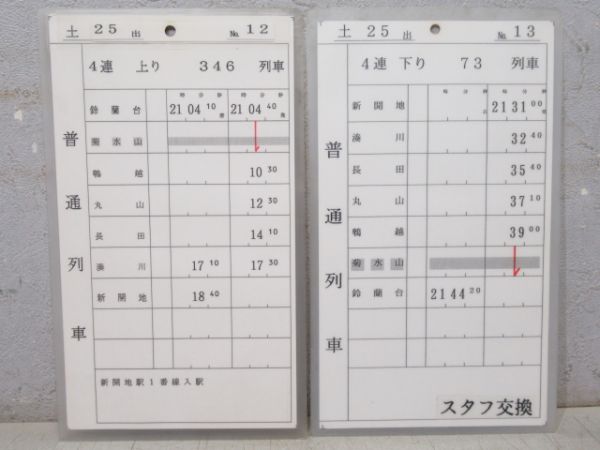 土 25 出 No. 12
4連 上り 346 列車
時 分 秒 時 分 秒
鈴蘭台 21 04 10着 21 04 40発
菊水山
鵯越 10 30
丸山 12 30
長田 14 10
湊川 17 10 17 30
新開地 18 40
新開地駅1番線入駅
普通列車
土 25 出 No. 13
4連 下り 73 列車
時 分 秒 時 分 秒
新開地 21 31 00
湊川 32 40
長田 35 40
丸山 37 10
鵯越 39 00
菊水山
鈴蘭台 21 44 20
普通列車
スタフ交換